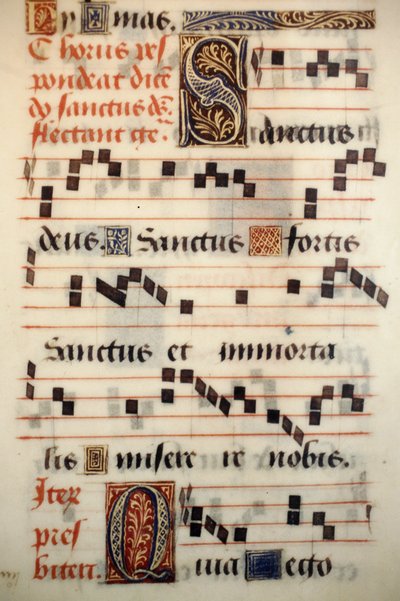 ymas.
Chorus res
pondeat dice
do sanctus de
flectant ge
Sanctus
deus. Sanctus fortis
Sanctus et immorta
lis miserere nobis.
Iter
pres
biteri.
Quia e ecto